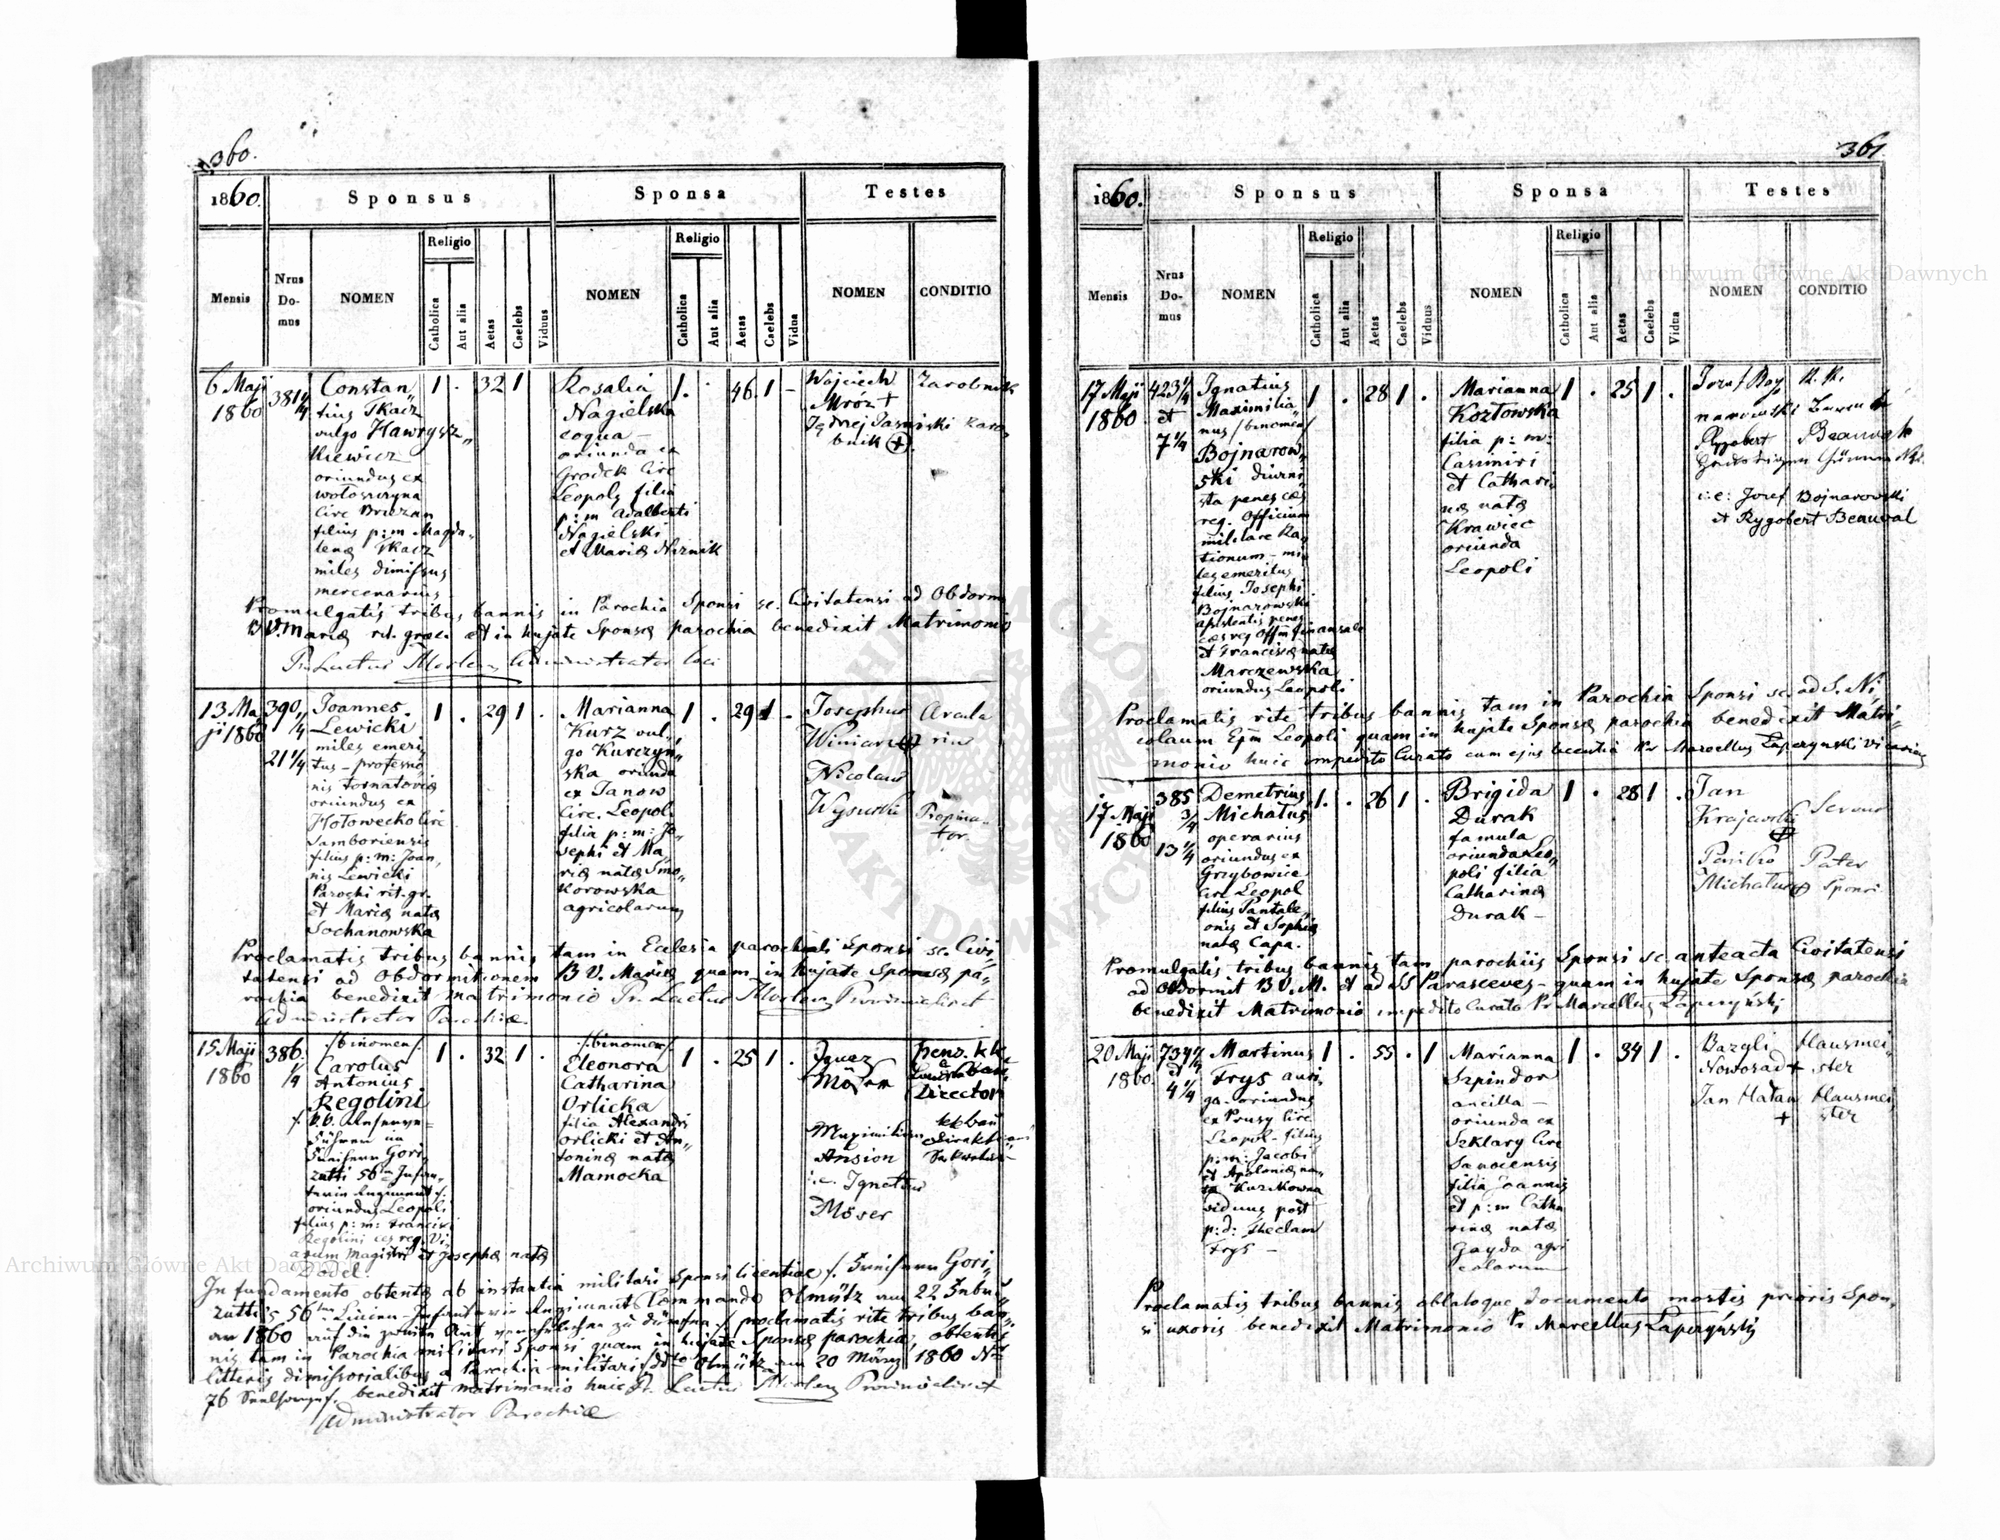 360.
1860.
Sponsus
Sponsa
Testes
Mensis
Nrus Do-mus
NOMEN
Religio
Catholica
Aut alia
Aetas
Caelebs
Viduus
NOMEN
Religio
Catholica
Aut alia
Aetas
Caelebs
Vidua
NOMEN
CONDITIO
6 Maji
1860
381 1/4
Constan„
tius Tkacz
vulgo Hawrysz„
kiewicz
oriundus ex
Wołoszczyna
Circ Brzezan
filius p:m Magda„
lenæ Tkacz
miles dimissus
mercenarius
1 . 32 1
Rosalia
Nagielska
coqua –
oriunda ex
Grodek Circ
Leopolg filia
p:m Adalberti
Nagielski
et Mariæ Niznik
1 . 46 1 –
Wojciech
Mróz +
Jędrzej Jasniski
Zarobnik
Zaro„
bnik +
Promulgatis tribus bannis in Parochia Sponsi sc. Civitatensi ad Obdorm
B V. Mariæ rit. græci et in hujate Sponsæ parochia benedixit Matrimonio
Pr. Lactus Morlem Administrator loci
13 Ma
ji 1860
390„
1/4
21 1/4
Joannes
Lewicki
miles emeri„
tus – professio
nis tornatoriæ
oriundus ex
Hołowecko Circ
Samboriensis
filius p: m: Joan„
nis Lewicki
Parochi rit. gr.
et Mariæ natæ
Sochanowska
1 . 29 1 .
Marianna
Kurz vul„
go Kurczyń„
ska oriunda
ex Janow
Circ. Leopol.
filia p: m: Jo„
sephi et Ma„
riæ natæ Smo„
korowska
agricolarum
1 . 29 1 .
Josephus
Winiarski
Nicolaus
Wysocki
Arcula
rius
Propina„
tor.
Proclamatis tribus bannis tam in Eclesia parochiali Sponsi sc. Civi„
tatensi ad Obdormitionem B V. Mariæ quam in hujate Sponsæ pa„
rochia benedixit matrimonio Pr. Lactus Morlem
Administrator Parochiæ
15 Maji
1860
386.
1/4
/:binomen:/
Carolus
Antonius
Regolini
oriundus Leopoli
filius p: m: Francisci
Regolini cæs reg. Vi„
arum Magistri et Josephæ natæ
Dodel.
1 . 32 1 .
/:binomen:/
Eleonora
Catharina
Orlicka
filia Alexandri
Orlicki et An„
toninæ natæ
Mamocka
1 . 25 1 .
Ignaz
Möser
Maximilian
Ansion
i.e. Ignatius
Möser
Director
In fundamento obtentæ ab instantia militari Sponsi licentiæ
zutti's 56 Commando Olmütz am 22
1860 proclamatis rite tribus ban„
nis tam in Parochia militari Sponsi quam in hujate Sponsæ parochia, obtentis
litteris dimissorialibus a Parochia militari dto Olmütz am 20 März 1860 N
76 benedixit matrimonio huic Pr. Lactus Morlem
Administrator Parochiæ
361
1860.
Sponsus
Sponsa
Testes
Mensis
Nrus Do-mus
NOMEN
Religio
Catholica
Aut alia
Aetas
Caelebs
Viduus
NOMEN
Religio
Catholica
Aut alia
Aetas
Caelebs
Vidua
NOMEN
CONDITIO
17 Maji
1860
423 1/4
et
7 1/4
Ignatius
Maximilia„
nus /binomen/
Bojnarow„
ski diurni„
sta penes cæs
reg. Officium
militare Ra„
tionum – mi„
les emeritus
filius Josephi
Bojnarowski
assistentis penes
cæs reg Offm finansale
et Franciscæ natæ
Marczewska
oriundus Leopoli
1 . 28 1 .
Marianna
Kozłowska
filia p: m:
Casimiri
et Cathari
næ natæ
Krawiec
oriunda
Leopoli
1 . 25 1 .
i: e: Josef Bojnarowski
et Rygobert Beauval
Proclamatis rite tribus bannis tam in Parochia Sponsi sc. ad S. Ni„
colaum Epm Leopoli quam in hujate Sponsæ parochia benedixit Matri„
monio huic impedito Curato cum ejus licentia Pr Marcellus Łapczyński Vicarius
17 Maji
1860
385
3/4
13 1/4
Demetrius
Michatus
operarius
oriundus ex
Grzybowice
Circ Leopol
filius Pantale„
onis et Sophiæ
natæ Capa.
1 . . 26 1 .
Brigida
Durak
famula
oriunda Leo„
poli filia
Catharinæ
Durak –
1 . 28 1 .
Jan
Krajewski
+
Pańko
Michatus +
Servus
Pater
Sponsi
Promulgatis tribus bannis tam parochiis Sponsi sc. anteacta Civitatensi
ad Obdormit B V. M. et ad SS Parasceves – quam in hujate Sponsæ parochia
benedixit Matrimonio impedito Curato Pr Marcellus Łapczyński
20 Maji
1860.
739 1/4
et
4 1/4
Martinus
Frys auri„
ga – oriundus
ex Prusy Circ
Leopol – filius
p: m: Jacobi
et Apoloniæ na„
tæ Kuzikowna
viduus post
p: d: Theclam
Frys –
1 . 55 . 1
Marianna
Szpindor
ancilla –
oriunda ex
Szklary Circ
Sanocensis
filia Joannis
et p: m Catha
rinæ natæ
Gayda agri
colarum
1 . 34 1 .
Bazyli
Noworad +
Jan Hałan
+
Hausmei„
ster
Hausmei„
ster
Proclamatis tribus bannis oblatoque documento mortis prioris Spon„
si uxoris benedixit Matrimonio Pr Marcellus Łapczyński
Archiwum Główne Akt Dawnych
Archiwum Główne Akt Dawnych
ARCHIWUM GŁÓWNE
AKT DAWNYCH